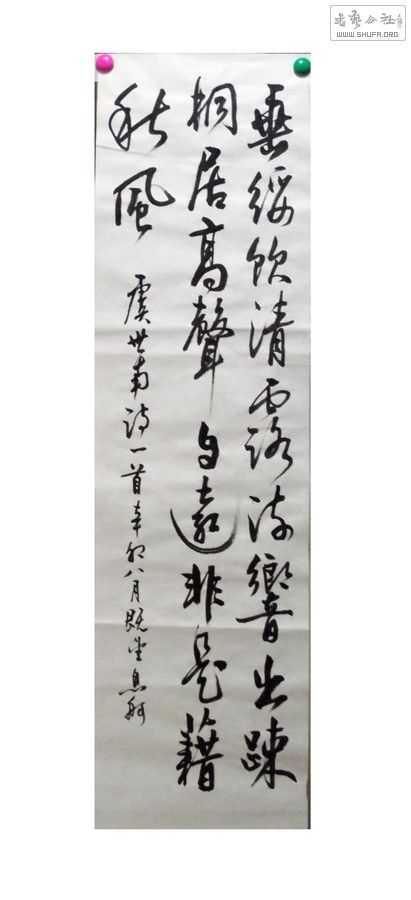 垂緌飲清露流響出疎
桐居高聲自遠非是藉
秋風
虞世南詩一首辛卯八月既望息
書藝公社
WWW.SHUFA.ORG